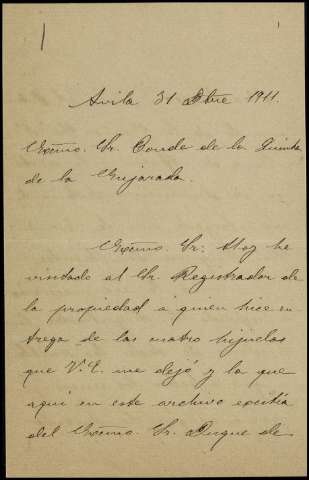 Avila 31 Dbre 1911.
Excmo. Sr. Conde de la Quinta
de la Enjarada.
Excmo. Sr: Hoy he
visitado al Sr. Registrador de
la propiedad á quien hice en-
trega de las cuatro hijuelas
que V.E. me dejó y la que
aqui en este archivo existia
del Excmo. Sr. Duque de